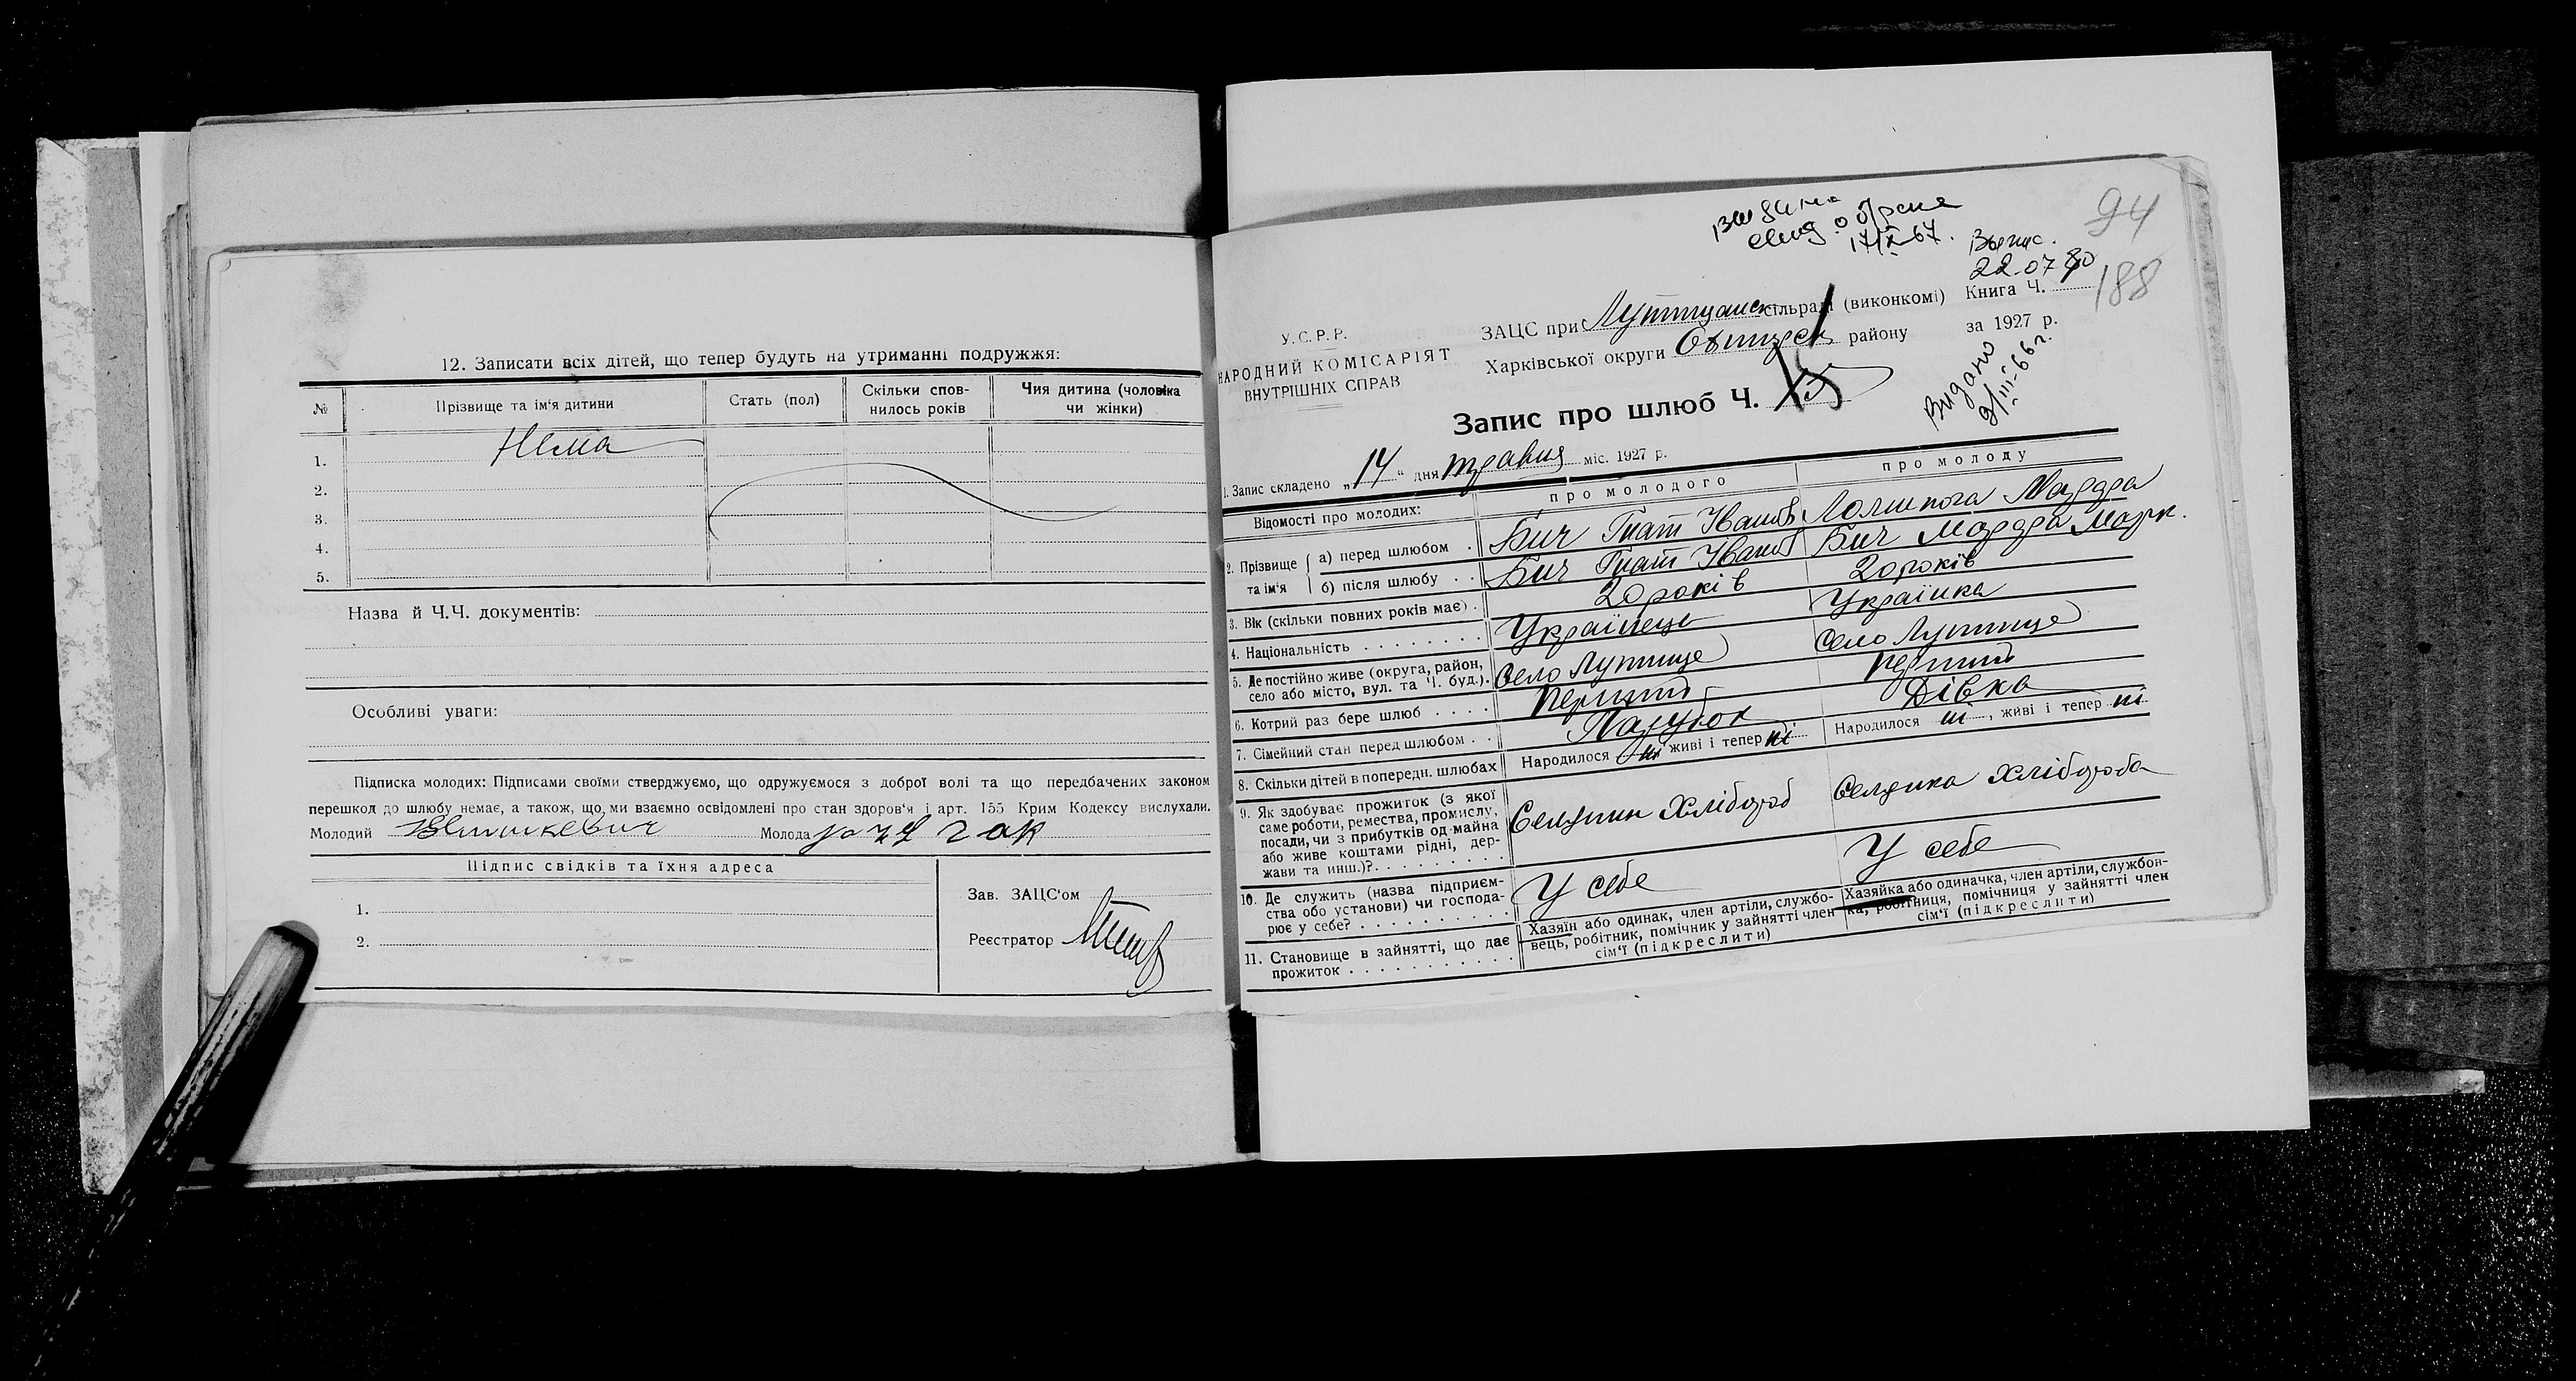 12. Записати всіх дітей, що тепер будуть на утриманні подружжя:
№ Прізвище та ім'я дитини Стать (пол) Скільки сповнилось років Чия дитина (чоловіка чи жінки)
1. Нема
2.
3.
4.
5.
Назва й Ч.Ч. документів:
Особливі уваги:
Підписка молодих: Підписами своїми стверджуємо, що одружуємося з доброї волі та що передбачених законом
перешкод до шлюбу немає, а також, що ми взаємно освідомлені про стан здоров'я і арт. 155 Крим Кодексу вислухали.
Молодий Молода
Підпис свідків та їхня адреса
1.
2.
Зав. ЗАЦС'ом
Реєстратор
94
17/X-67.
22.07.80
188
Видано
9/III-66 г.
У.С.Р.Р.
НАРОДНИЙ КОМІСАРІЯТ
ВНУТРІШНІХ СПРАВ
ЗАЦС при сільраді (виконкомі) Книга Ч.
Харківської округи району за 1927 р.
Запис про шлюб Ч.
1. Запис складено „14" дня травня міс. 1927 р.
Відомості про молодих: про молодого про молоду
2. Прізвище та ім'я
а) перед шлюбом Бич Гнат Іванов
б) після шлюбу Бич Гнат Іванов Бич Марк.
3. Вік (скільки повних років має) 20 років 20 років
4. Національність Українець Українка
5. Де постійно живе (округа, район,
село або місто, вул. та Ч. буд.). Село Лутище Село Лутище
6. Котрий раз бере шлюб Перший Перший
7. Сімейний стан перед шлюбом Парубок Дівка
8. Скільки дітей в попередн. шлюбах Народилося ні живі і тепер ні Народилося ні, живі і тепер ні
9. Як здобуває прожиток (з якої
саме роботи, ремества, промислу,
посади, чи з прибутків од майна
або живе коштами рідні, дер-
жави та инш.)? Селянин Хлібороб Селянка Хлібороба
10. Де служить (назва підприєм-
ства або установи) чи господа-
рює у себе? У себе У себе
11. Становище в зайнятті, що дає
прожиток
Хазяїн або одинак, член артіли, службо-
вець, робітник, помічник у зайнятті член
сім'ї (підкреслити)
Хазяйка або одиначка, член артіли, службов-
ка, робітниця, помічниця у зайнятті член
сім'ї (підкреслити)